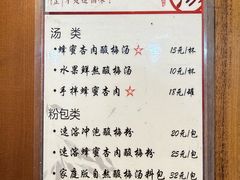 汤 类
• 蜂蜜杏肉酸梅汤☆ 15元/杯
• 水果鲜熬酸梅汤 10元/杯
• 手拌蜂蜜杏肉☆ 18元/罐
粉包类
• 速溶冲泡酸梅粉 20元/包
• 速溶蜂蜜杏肉酸梅粉 25元/包
• 家庭版自熬酸梅汤料包 32元/包